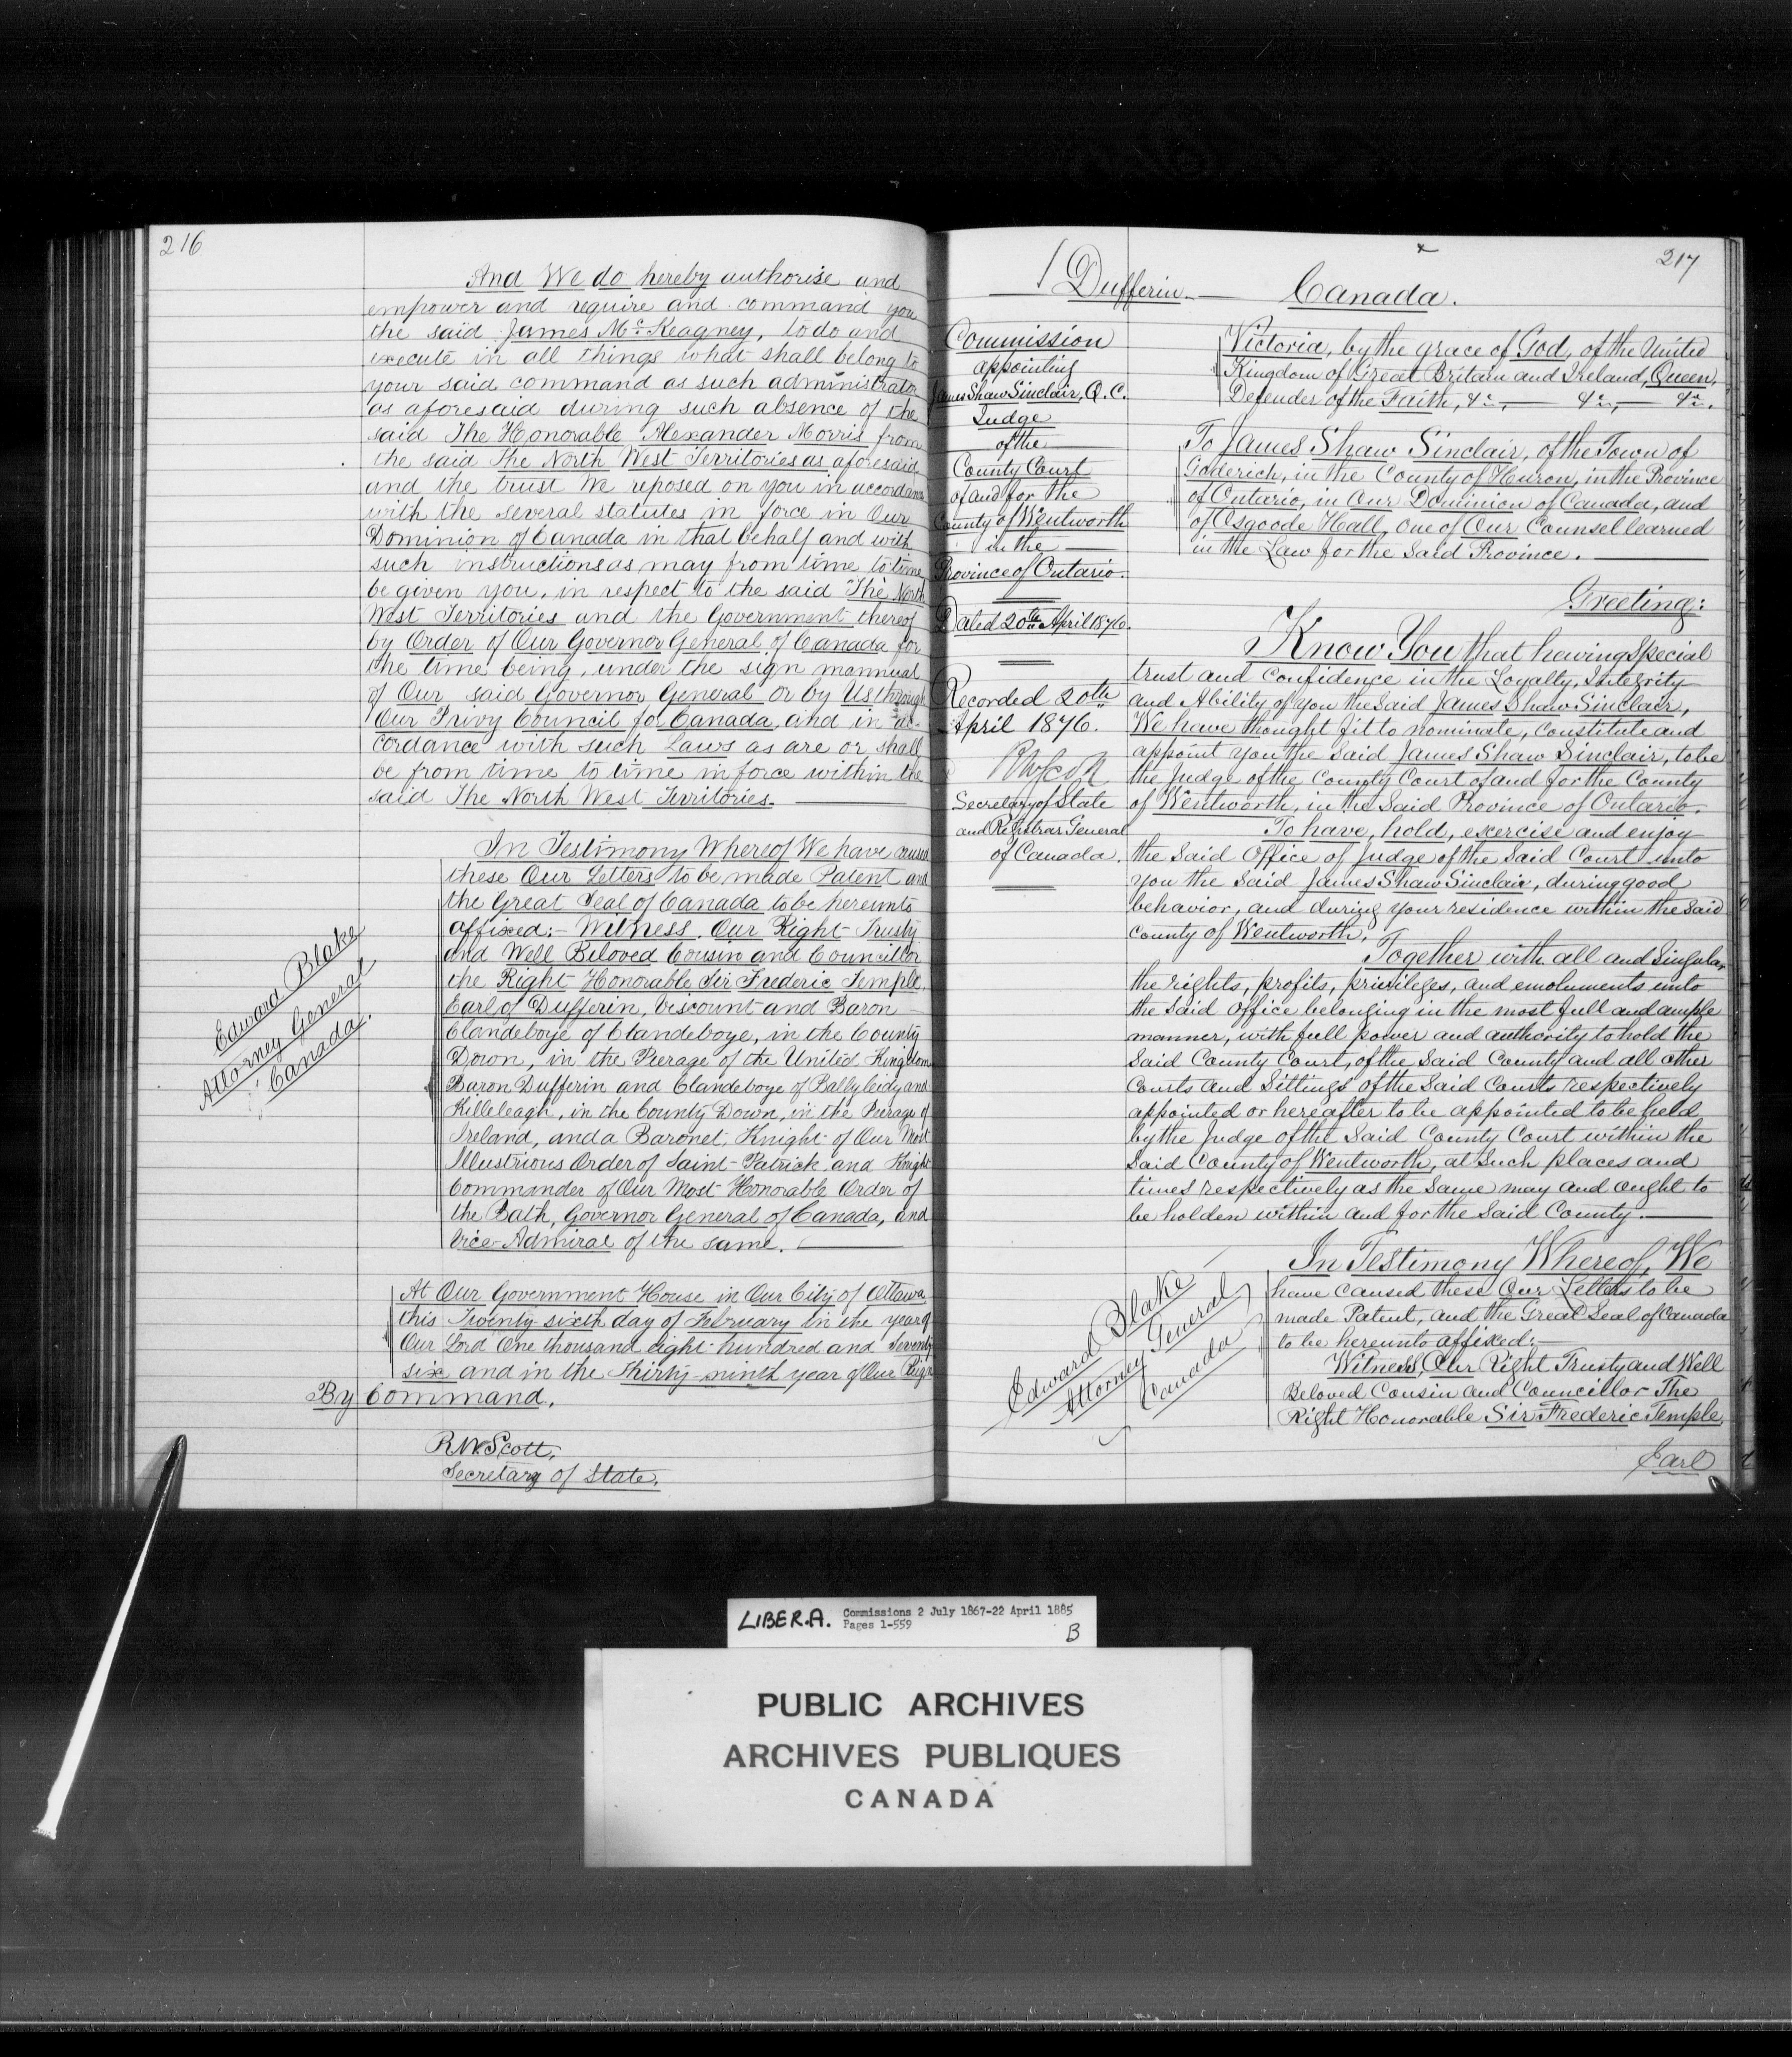 216
And We do hereby authorise and
empower and require and command you
the said James Mc. Keagney, to do and
execute in all things what shall belong to
your said command as such administrator
as aforesaid during such absence of the
said The Honorable Alexander Morris from
the said The North West Territories as aforesaid
and the trust We reposed on you in accordance
with the several statutes in force in Our
Dominion of Canada in that behalf and with
such instructions as may from time to time
be given you, in respect to the said The North
West Territories and the Government thereof
by Order of Our Governor General of Canada for
the time being, under the sign mannual
of Our said Governor General or by Us through
Our Privy Council for Canada, and in ac-
cordance with such Laws as are or shall
be from time to time in force within the
said The North West Territories.
In Testimony Whereof We have caused
these Our Letters to be made Patent and
the Great Seal of Canada to be hereunto
affixed:- Witness, Our Right Trusty
and Well Beloved Cousin and Councillor
the Right Honorable Sir Frederic Temple,
Earl of Dufferin, Viscount and Baron
Clandeboye of Clandeboye, in the County
Down, in the Peerage of the United Kingdom
Baron Dufferin and Clandeboye of Ballyleidy and
Killeleagh, in the County Down, in the Peerage of
Ireland, and a Baronet, Knight of Our Most
Illustrious Order of Saint Patrick and Knight
Commander of Our Most Honorable Order of
the Bath, Governor General of Canada, and
Vice-Admiral of the same.
Edward Blake
Attorney General
Canada.
At Our Government House in Our City of Ottawa
this Twenty sixth day of February in the year of
Our Lord One thousand eight hundred and Seventy
six and in the Thirty-ninth year of Our Reign
By Command,
R.W. Scott,
Secretary of State.
217
Dufferin
Canada.
Commission
appointing
James Shaw Sinclair, Q.C.
Judge
of the
County Court
of and for the
County of Wentworth
in the
Province of Ontario.
Dated 20th April 1876.
Recorded 20th
April 1876.
RWScott
Secretary of State
and Registrar General
of Canada.
Victoria, by the grace of God, of the United
Kingdom of Great Britain and Ireland, Queen,
Defender of the Faith, &c., &c., &c.
To James Shaw Sinclair, of the Town of
Goderich, in the County of Huron, in the Province
of Ontario, in Our Dominion of Canada, and
of Osgoode Hall, one of Our Counsel learned
in the Law for the said Province.
Greeting:
Know You that having special
trust and confidence in the Loyalty, Integrity
and Ability of you the said James Shaw Sinclair,
We have thought fit to nominate, constitute and
appoint you the said James Shaw Sinclair, to be
the Judge of the County Court of and for the County
of Wentworth, in the said Province of Ontario.
To have, hold, exercise and enjoy
the said Office of Judge of the said Court unto
you the said James Shaw Sinclair, during good
behavior, and during your residence within the said
County of Wentworth.
Together with all and singular
the rights, profits, privileges, and emoluments unto
the said Office belonging in the most full and ample
manner, with full power and authority to hold the
said County Court, of the said County and all other
Courts and Sittings of the said Courts respectively
appointed or hereafter to be appointed to be held
by the Judge of the said County Court within the
said County of Wentworth, at such places and
times respectively as the same may and ought to
be holden within and for the said County.
In Testimony Whereof, We
have caused these Our Letters to be
made Patent, and the Great Seal of Canada
to be hereunto affixed:-
Witness, Our Right Trusty and Well
Beloved Cousin and Councillor The
Right Honorable Sir Frederic Temple
Earl
Edward Blake
Attorney General
Canada
LIBER.A. Commissions 2 July 1867-22 April 1885
Pages 1-559
B
PUBLIC ARCHIVES
ARCHIVES PUBLIQUES
CANADA